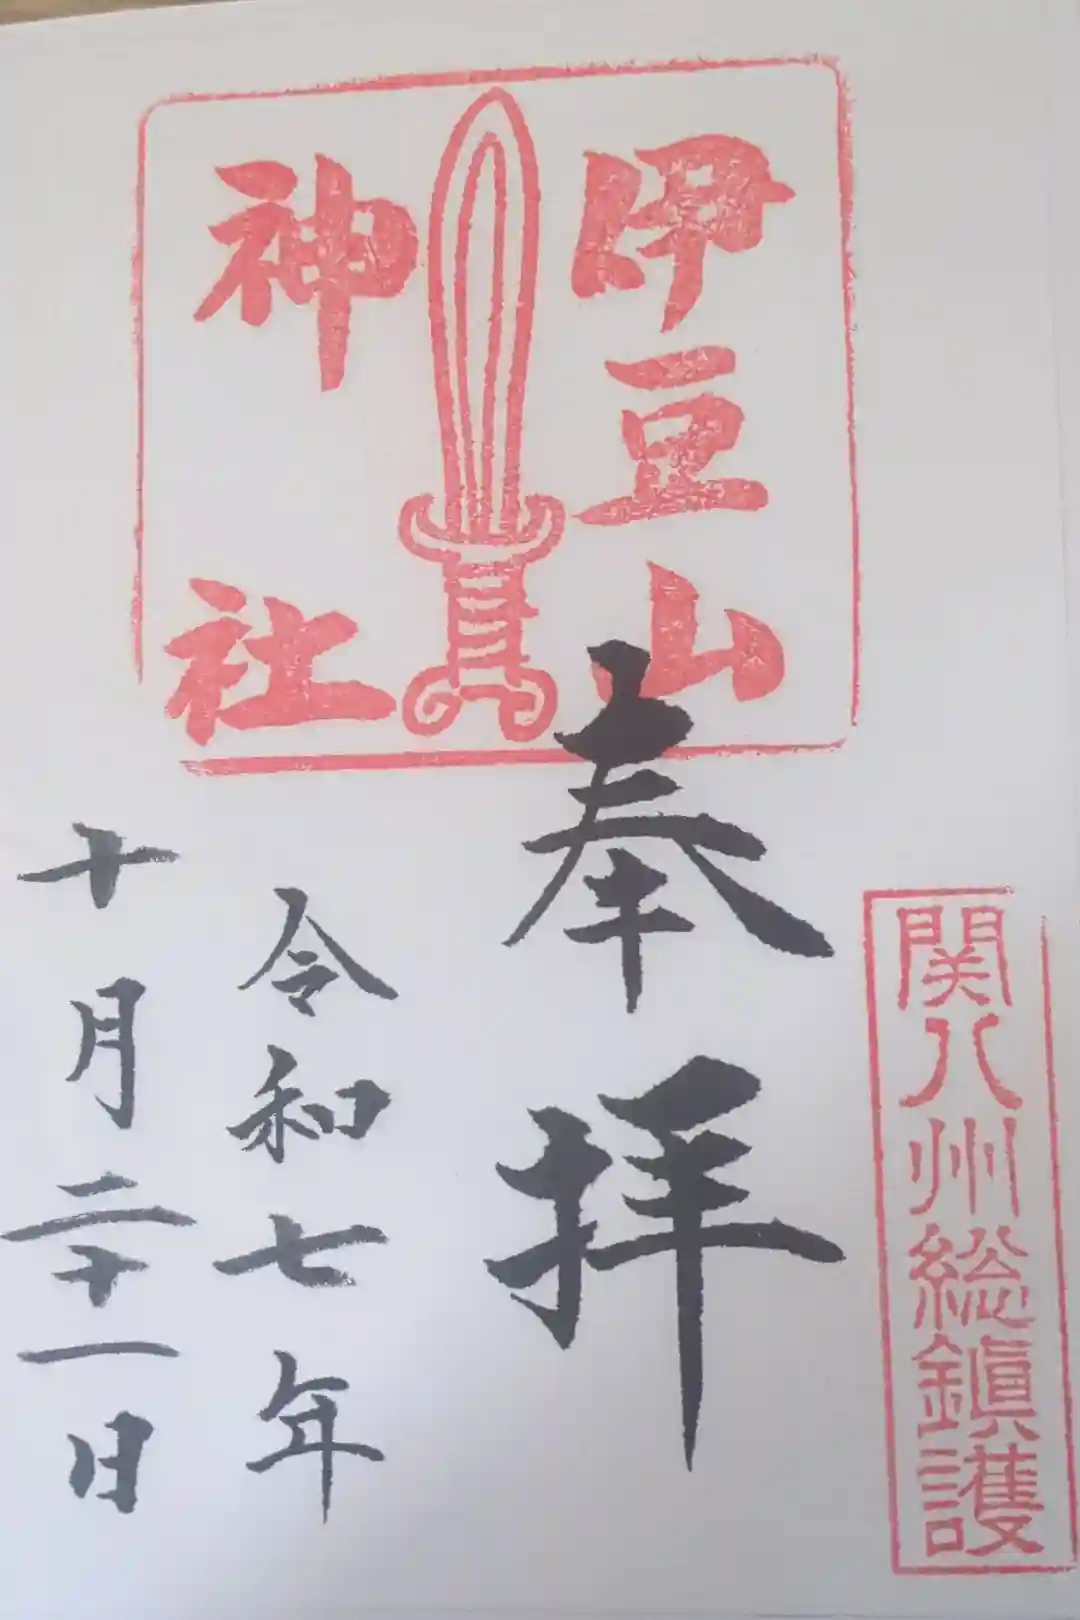 関八州総鎮護
奉拝
伊豆山
神社
令和七年
十月二十一日